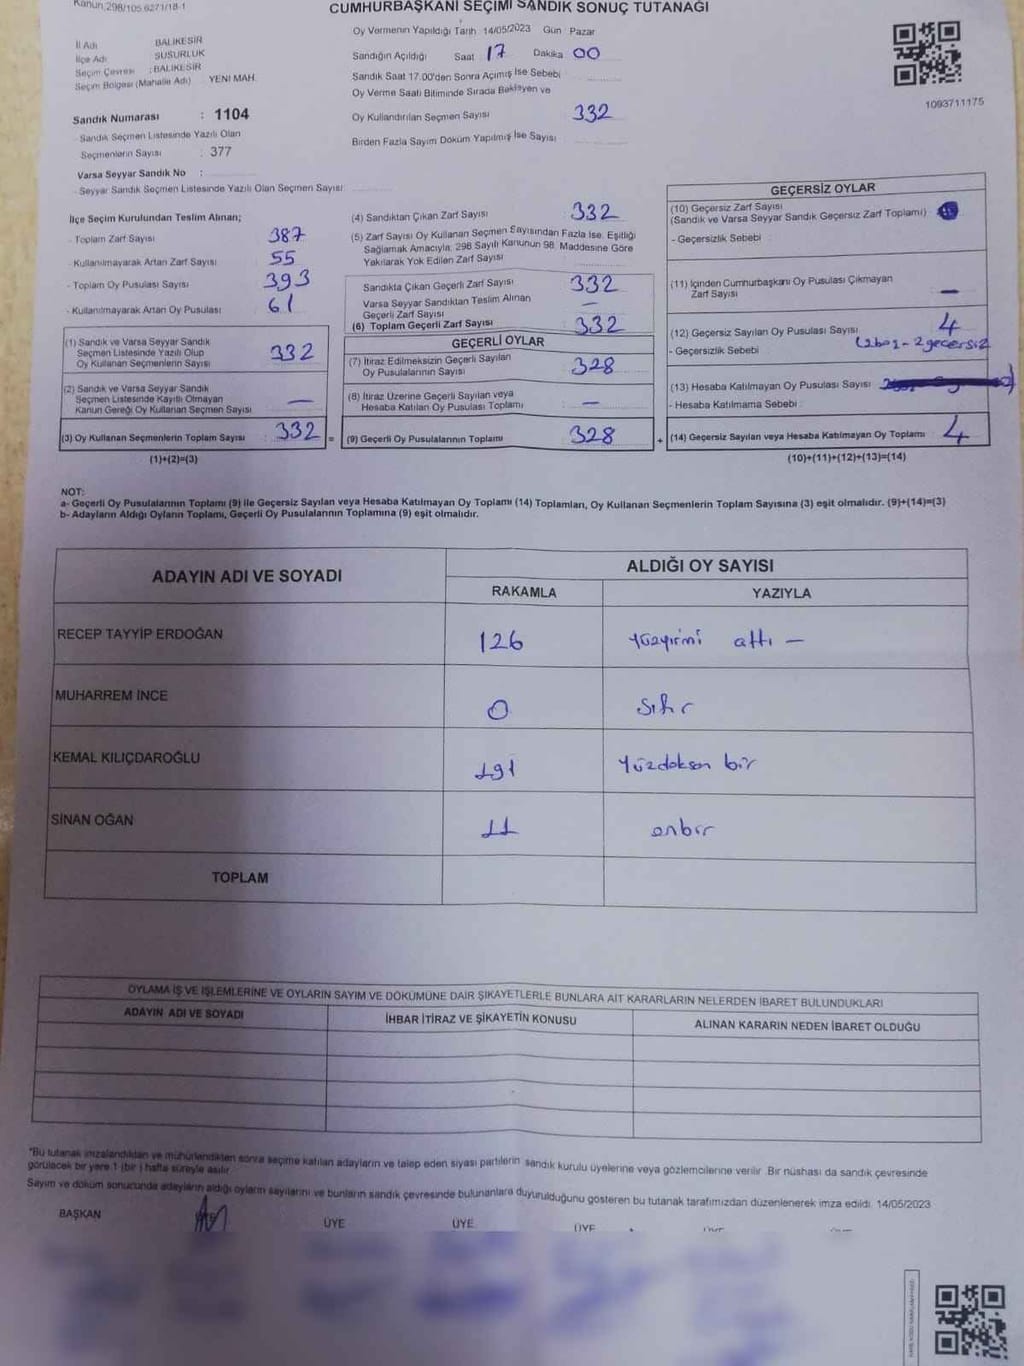 Kanun, 298/105.6271/18-1
CUMHURBAŞKANI SEÇİMİ SANDIK SONUÇ TUTANAĞI
İl Adı BALIKESİR
İlçe Adı SUSURLUK
Seçim Çevresi : BALIKESİR
Seçim Bölgesi (Mahalle Adı) YENİ MAH.
Sandık Numarası : 1104
- Sandık Seçmen Listesinde Yazılı Olan
Seçmenlerin Sayısı : 377
Varsa Seyyar Sandık No :
- Seyyar Sandık Seçmen Listesinde Yazılı Olan Seçmen Sayısı:
Oy Vermenin Yapıldığı Tarih 14/05/2023 Gün Pazar
Sandığın Açıldığı Saat 17 Dakika 00
Sandık Saat 17.00'den Sonra Açılmış İse Sebebi
Oy Verme Saati Bitiminde Sırada Bekleyen ve
Oy Kullandırılan Seçmen Sayısı 332
Birden Fazla Sayım Döküm Yapılmış İse Sayısı
1093711175
İlçe Seçim Kurulundan Teslim Alınan;
- Toplam Zarf Sayısı 387
- Kullanılmayarak Artan Zarf Sayısı 55
- Toplam Oy Pusulası Sayısı 393
- Kullanılmayarak Artan Oy Pusulası 61
(1) Sandık ve Varsa Seyyar Sandık
Seçmen Listesinde Yazılı Olup
Oy Kullanan Seçmenlerin Sayısı 332
(2) Sandık ve Varsa Seyyar Sandık
Seçmen Listesinde Kayıtlı Olmayan
Kanun Gereği Oy Kullanan Seçmen Sayısı —
(3) Oy Kullanan Seçmenlerin Toplam Sayısı 332 =
(1)+(2)=(3)
(4) Sandıktan Çıkan Zarf Sayısı 332
(5) Zarf Sayısı Oy Kullanan Seçmen Sayısından Fazla İse, Eşitliği
Sağlamak Amacıyla, 298 Sayılı Kanunun 98. Maddesine Göre
Yakılarak Yok Edilen Zarf Sayısı
Sandıkta Çıkan Geçerli Zarf Sayısı 332
Varsa Seyyar Sandıktan Teslim Alınan
Geçerli Zarf Sayısı —
(6) Toplam Geçerli Zarf Sayısı 332
GEÇERLİ OYLAR
(7) İtiraz Edilmeksizin Geçerli Sayılan
Oy Pusulalarının Sayısı 328
(8) İtiraz Üzerine Geçerli Sayılan veya
Hesaba Katılan Oy Pusulası Toplamı : —
(9) Geçerli Oy Pusulalarının Toplamı : 328 +
GEÇERSİZ OYLAR
(10) Geçersiz Zarf Sayısı
(Sandık ve Varsa Seyyar Sandık Geçersiz Zarf Toplamı)
- Geçersizlik Sebebi :
(11) İçinden Cumhurbaşkanı Oy Pusulası Çıkmayan
Zarf Sayısı —
(12) Geçersiz Sayılan Oy Pusulası Sayısı 4
- Geçersizlik Sebebi 2 geçersiz
(13) Hesaba Katılmayan Oy Pusulası Sayısı :
- Hesaba Katılmama Sebebi :
(14) Geçersiz Sayılan veya Hesaba Katılmayan Oy Toplamı : 4
(10)+(11)+(12)+(13)=(14)
NOT:
a- Geçerli Oy Pusulalarının Toplamı (9) ile Geçersiz Sayılan veya Hesaba Katılmayan Oy Toplamı (14) Toplamları, Oy Kullanan Seçmenlerin Toplam Sayısına (3) eşit olmalıdır. (9)+(14)=(3)
b- Adayların Aldığı Oyların Toplamı, Geçerli Oy Pusulalarının Toplamına (9) eşit olmalıdır.
ADAYIN ADI VE SOYADI ALDIĞI OY SAYISI
RAKAMLA YAZIYLA
RECEP TAYYİP ERDOĞAN 126 yüzyirmi altı —
MUHARREM İNCE 0 sıfır
KEMAL KILIÇDAROĞLU 191 Yüzdoksan bir
SİNAN OĞAN 11 onbir
TOPLAM
OYLAMA İŞ VE İŞLEMLERİNE VE OYLARIN SAYIM VE DÖKÜMÜNE DAİR ŞİKAYETLERLE BUNLARA AİT KARARLARIN NELERDEN İBARET BULUNDUKLARI
ADAYIN ADI VE SOYADI İHBAR İTİRAZ VE ŞİKAYETİN KONUSU ALINAN KARARIN NEDEN İBARET OLDUĞU
*Bu tutanak imzalandıktan ve mühürlendikten sonra seçime katılan adayların ve talep eden siyasi partilerin sandık kurulu üyelerine veya gözlemcilerine verilir. Bir nüshası da sandık çevresinde
görülecek bir yere 1 (bir) hafta süreyle asılır.
Sayım ve döküm sonucunda adayların aldığı oyların sayılarını ve bunların sandık çevresinde bulunanlara duyurulduğunu gösteren bu tutanak tarafımızdan düzenlenerek imza edildi. 14/05/2023
BAŞKAN ÜYE ÜYE ÜYE